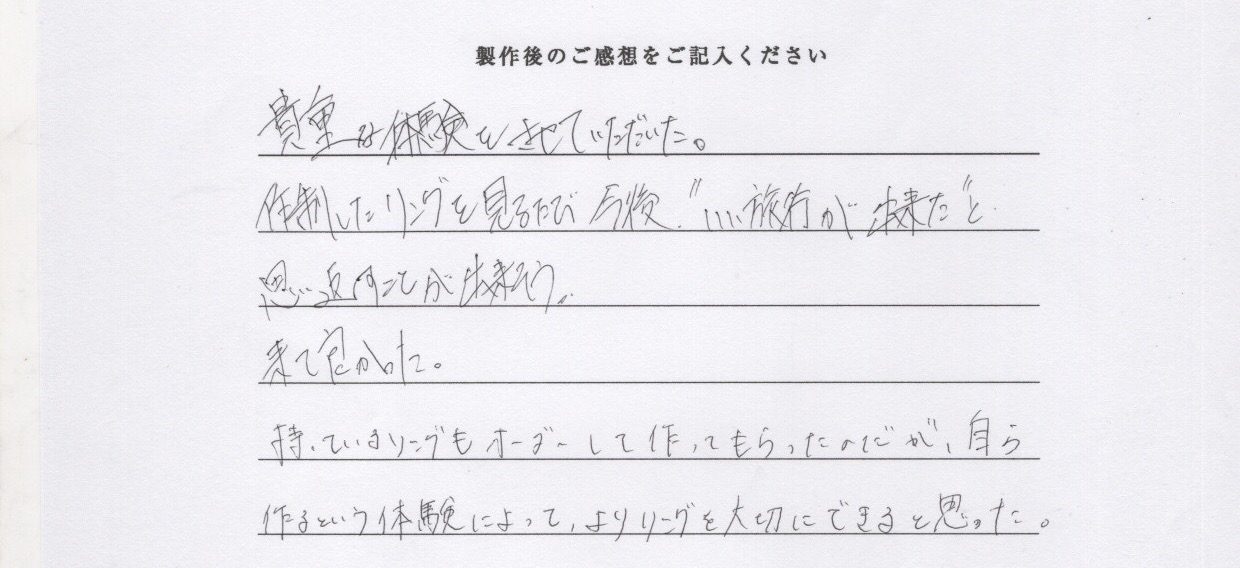 製作後のご感想をご記入ください
貴重な体験をさせていただいた。
作制したリングを見るたび今後、"いい旅行が出来た"と
思い返すことが出来そう。
来て良かった。
持っているリングもオーダーして作ってもらったのだが、自ら
作るという体験によって、よりリングを大切にできると思った。